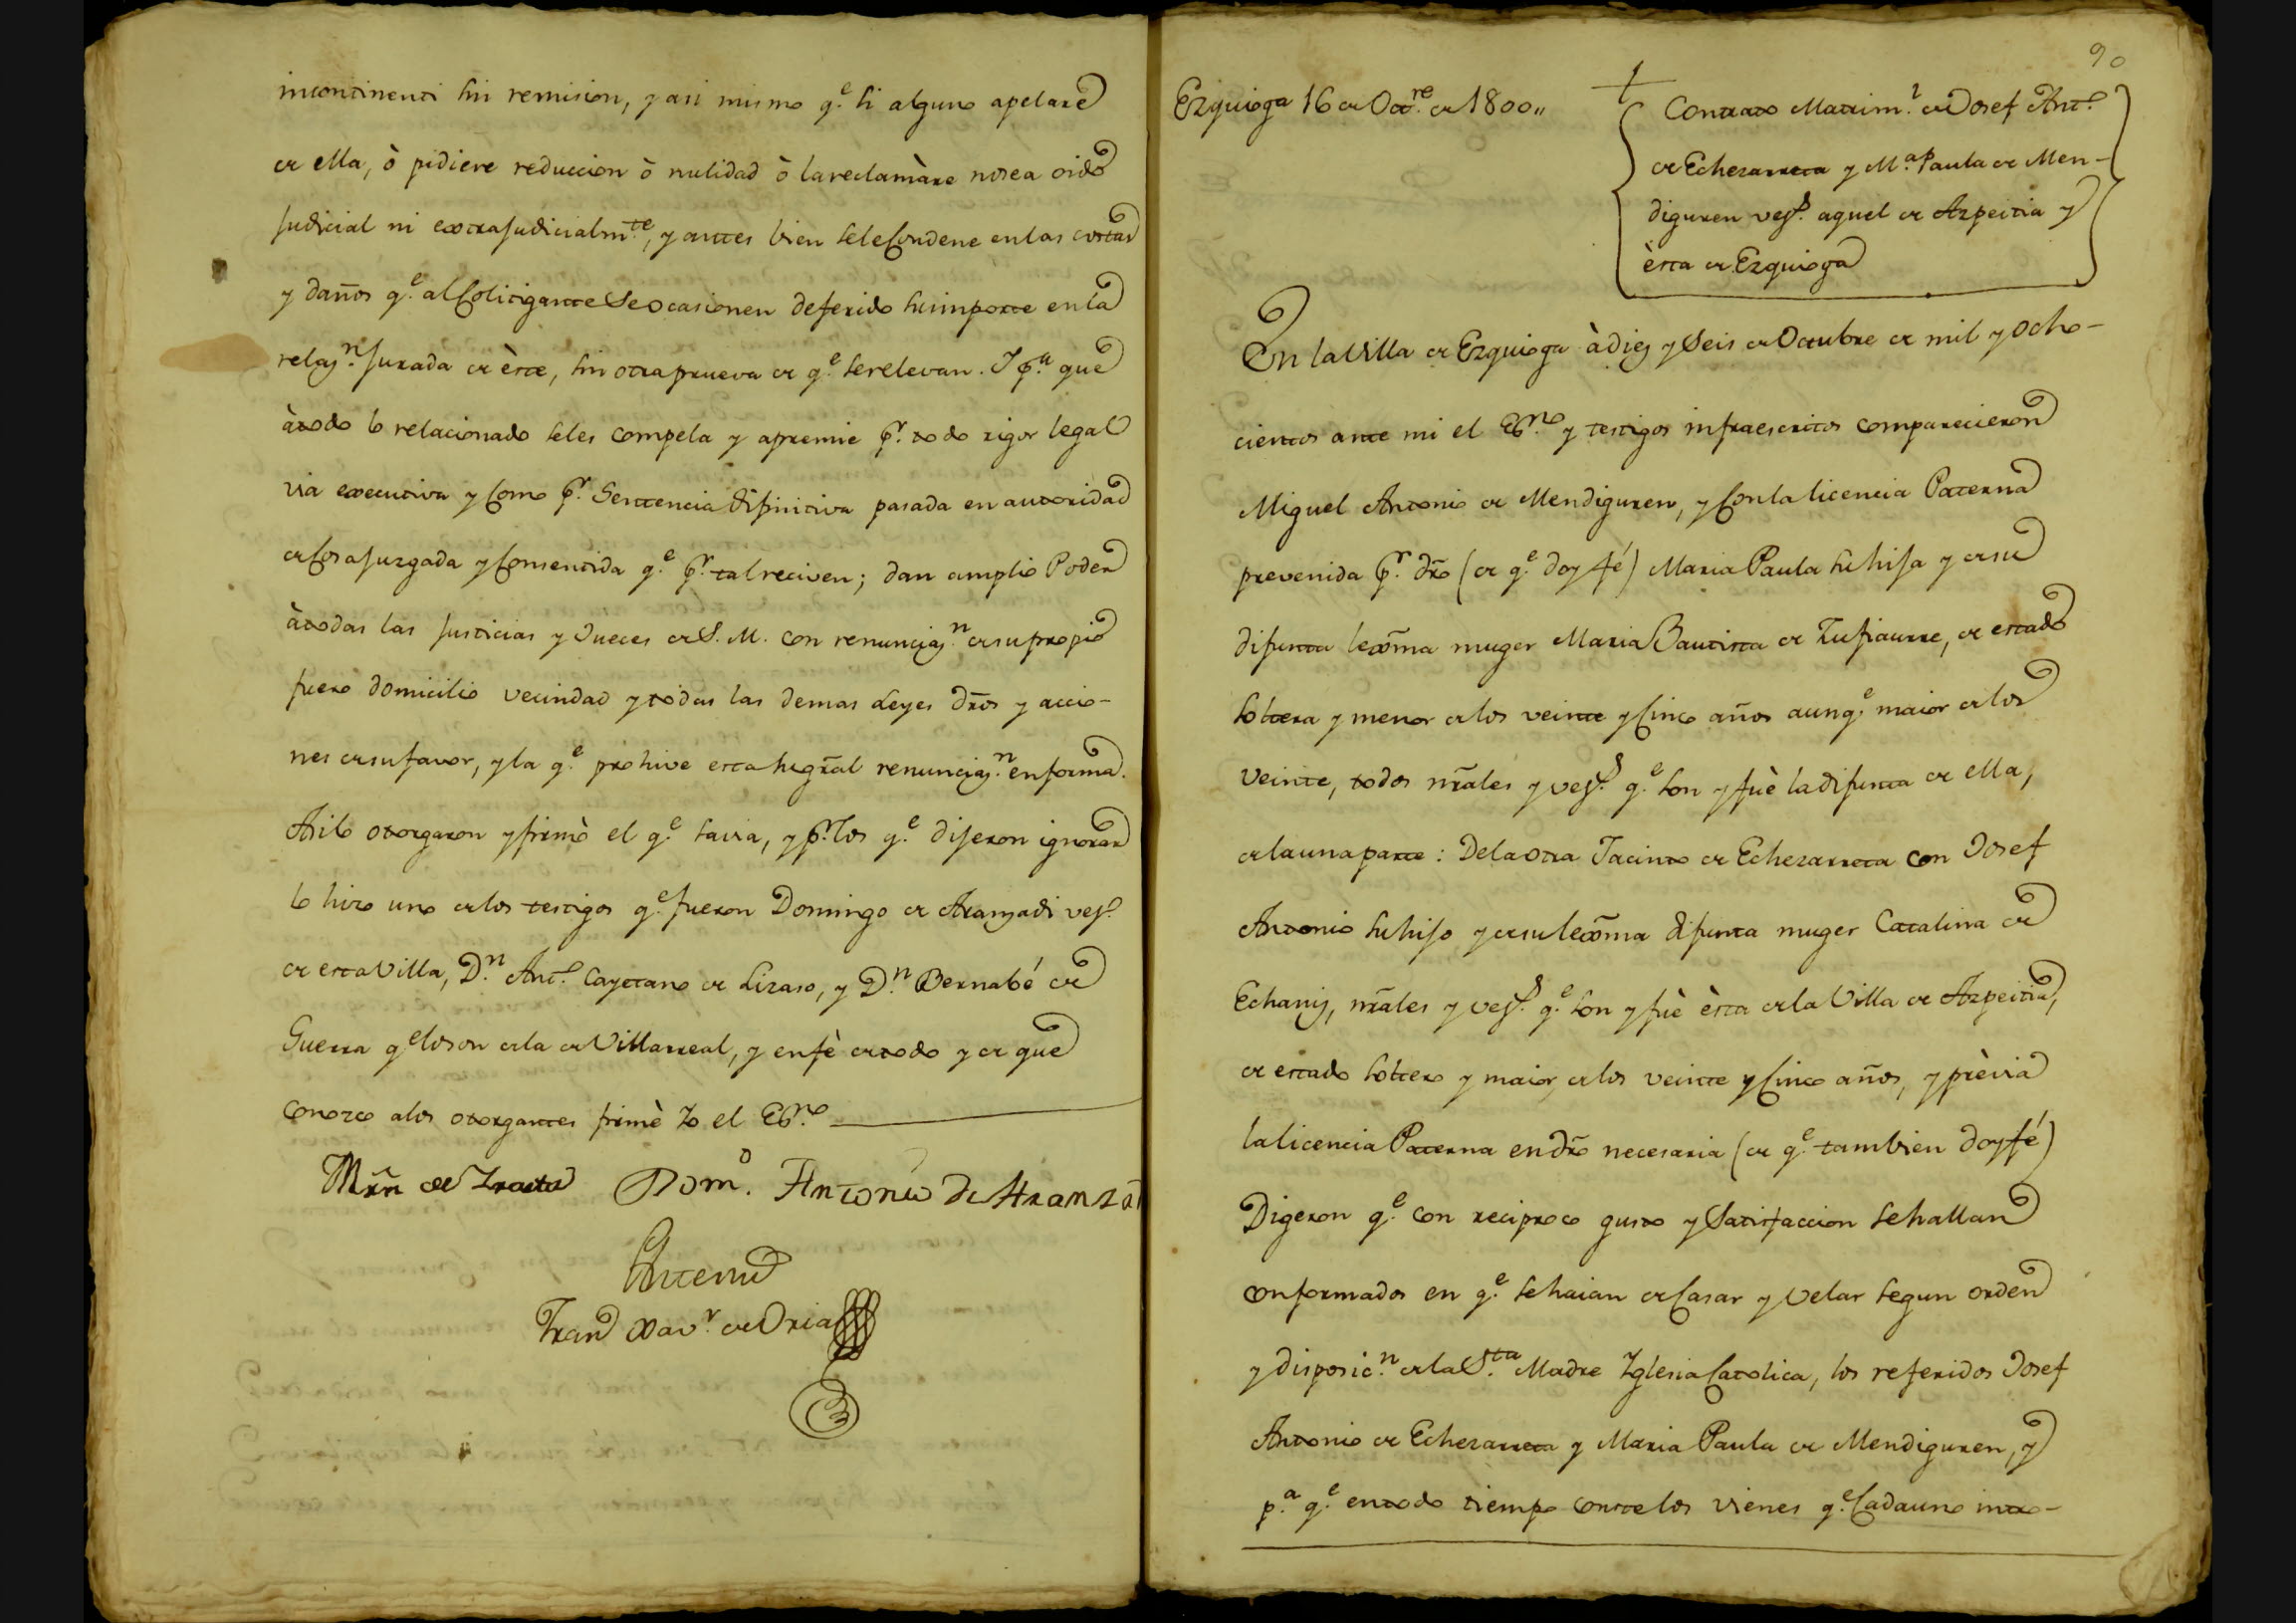 incontinenti sin remision, y asi mismo q.e si alguno apelare
de ella, ò pidiere reduccion ò nulidad ò la reclamàre no sea oido
judicial ni extrajudicialm.te, y antes bien se le condene en las costas
y daños q.e al Colitigante se ocasionen deferido su importe en la
relaz.n jurada de èste, sin otra prueva de q.e se relevan. I p.a que
àtodo lo relacionado se les compela y apremie p.r todo rigor legal
via executiva y como p.r Sentencia difinitiva pasada en autoridad
de Cosa juzgada y consentida q.e p.r tal reciven; dan amplio Poder
àtodas las justicias y Jueces de S. M. con renunciaz.n de su propio
fuero domicilio vecindad y todas las demas Leyes dr̃os y accio-
nes de su favor, y la q.e prohive esta su gr̃al renunciaz.n en forma.
Asi lo otorgaron y firmò el q.e savia, y p.r los q.e dijeron ignorar
lo hizo uno de los testigos q.e fueron Domingo de Aranzadi vez.o
de esta Villa, D.n Ant.o Cayetano de Lizaso, y D.n Bernabé de
Guerra q.e lo son de la de Villarreal, y en fè de todo y de que
conozco a los otorgantes firmè Yo el Es.no
Mrñ de Dom.o Antonio de Aranzã
Ante mi
Fran Xav.r de Oria
90
Ezquioga 16 de Oct.re de 1800,,
Contrato Matrim.l de Josef Ant.o
de Echezarreta y M.a Paula de Men-
diguren vez.s aquel de Azpeitia y
èsta de Ezquioga
En la Villa de Ezquioga à diez y Seis de Octubre de mil y ocho-
cientos ante mi el Es.no y testigos infraescritos comparecieron
Miguel Antonio de Mendiguren, y con la licencia Paterna
prevenida p.r dr̃o (de q.e doy fé) Maria Paula su hija y de su
difunta lexm̃a muger Maria Bautista de Zufiaurre, de estado
soltera y menor de los veinte y cinco años aunq.e maior de los
veinte, todos nr̃ales y vez.s q.e son y fuè la difunta de ella,
de la una parte: De la otra Jacinto de Echezarreta con Josef
Antonio su hijo y de su lexm̃a difunta muger Catalina de
Echaniz, nr̃ales y vez.s q.e son y fuè èsta de la Villa de Azpeitia,
de estado soltero y maior de los veinte y cinco años, y prèvia
la licencia Paterna en dr̃o necesaria (de q.e tambien doy fé)
Digeron q.e con reciproco gusto y Satisfaccion se hallan
conformados en q.e se haian de Casar y Velar segun orden
y disposic.n de la S.ta Madre Yglesia Catolica, los referidos Josef
Antonio de Echezarreta y Maria Paula de Mendiguren, y
p.a q.e en todo tiempo conste los vienes q.e Cada uno intro-